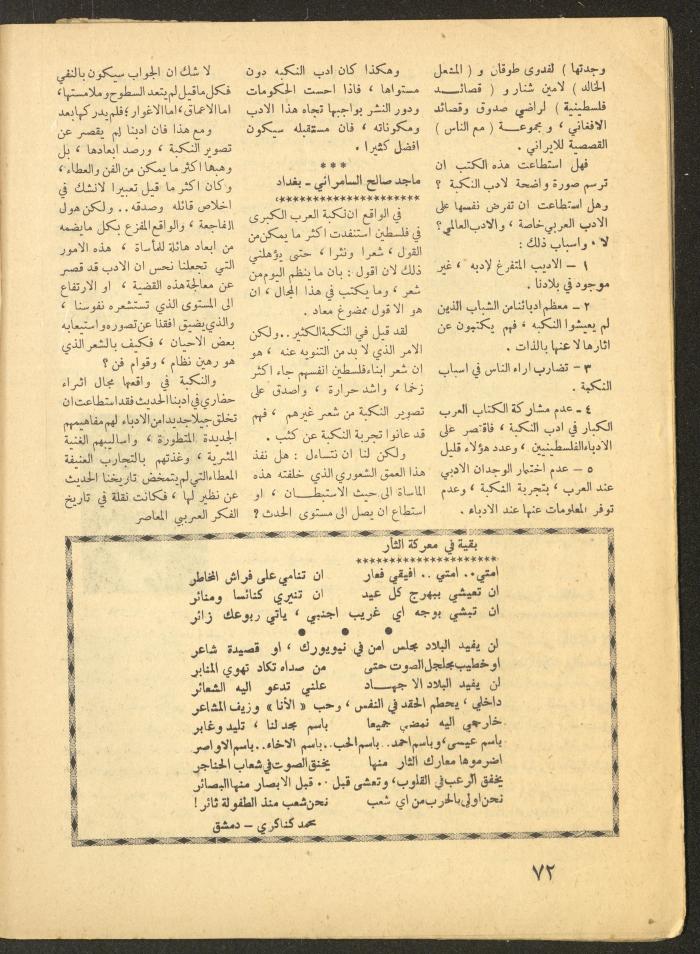 وجدتها ) لفدوى طوقان و ( المشعل
الخالد ) لامين شنار و ( قصائــد
فلسطينية ) لراضي صدوق وقصائد
الافغاني ، وبجموعة ( مع الناس )
القصصية للايراني .
فهل استطاعت هذه الكتب ان
ترسم صورة واضحة لادب النكبة ؟
وهل استطاعت ان تفرض نفسها على
الادب العربي خاصة ، والادب العالمي؟
لا ، واسباب ذلك :
١ – الاديب المتفرغ لادبه ، غير
موجود في بلادنا .
٢ – معظم ادبائنا من الشباب الذين
لم يعيشوا النكبه ، فهم يكتبون عن
اثارها لا عنها بالذات .
٣ – تضارب اراء الناس في اسباب
النكبة .
٤ – عدم مشاركة الكتاب العرب
الكبار في ادب النكبة ، فاقتصر على
الادباء الفلسطينيين ، وعدد هؤلاء قليل
٥ – عدم اختمار الوجدان الادبي
عند العرب ، بتجربة النكبة ، وعدم
توفر المعلومات عنها عند الادباء .
وهكذا كان ادب النكبه دون
مستواها ، فاذا احست الحكومات
ودور النشر بواجبها تجاه هذا الادب
ومكوناته ، فان مستقبله سيكون
افضل كثيرا .
***
ماجد صالح السامرائي – بغداد
في الواقع ان نكبة العرب الكبرى
في فلسطين استنفدت اكثر ما يمكن من
القول ، شعرا ونثرا ، حتى يؤهلني
ذلك لان اقول : بان ما ينظم اليوم من
شعر ، وما يكتب في هذا المجال ، ان
هو الا قول ممضوغ معاد .
لقد قيل في النكبة الكثير .. ولكن
الامر الذي لا بد من التنويه عنه ، هو
ان شعر ابناء فلسطين انفسهم جاء اكثر
زخما ، واشد حرارة ، واصدق على
تصوير النكبة من شعر غيرهم ، فهم
قد عانوا تجربة النكبة عن كثب .
ولكن لنا ان نتساءل : هل نفذ
هذا العمق الشعوري الذي خلفته هذه
الماساة الى حيث الاستبطـــان ، او
استطاع ان يصل الى مستوى الحدث ؟
لا شك ان الجواب سيكون بالنفي
فكل ما قيل لم يتعد السطوح وملامستها ،
اما الاعماق ، اما الاغوار ؛ فلم يدركها بعد
ومع هذا فان ادبنا لم يقصر عن
تصوير النكبة ، ورصد ابعادها ، بل
وهبها اكثر ما يمكن من الفن والعطاء ،
وكان اكثر ما قيل تعبيرا لانشك في
اخلاص قائله وصدقه .. ولكن هول
الفاجعة ، والواقع المفزع بكل ما يضمه
من ابعاد هائلة للمأساة ، هذه الامور
التي تجعلنا نحس ان الادب قد قصر
عن معالجة هذه القضية ، او الارتفاع
الى المستوى الذي تستشعره نفوسنا ،
والذي يضيق افقنا عن تصوره واستيعابه
بعض الاحيان ، فكيف بالشعر الذي
هو رهين نظام ، وقوام فن ؟
والنكبة في واقعها مجال اثراء
حضاري في ادبنا الحديث فقد استطاعت ان
تخلق جيلا جديدا من الادباء لهم مفاهيمهم
الجديدة المتطورة ، واساليبهم الغنية
المثرية ، وغذتهم بالتجارب العنيفة
المعطاء التي لم يتمخض تاريخنا الحديث
عن نظير لها ، فكانت نقلة في تاريخ
الفكر العربي المعاصر
بقية في معركة الثار
امتي .. امتي .. افيقي فعار ان تنامي على فراش المخاطر
ان تعيشي ببهرج كل عيد ان تنيري كنائسا ومنائر
ان تبشي بوجه اي غريب اجنبي ، ياتي ربوعك زائر
● ● ●
لن يفيد البلاد مجلس امن في نيويورك ، او قصيدة شاعر
او خطيب مجلجل الصوت حتى من صداه تكاد تهوي المنابر
لن يفيد البلاد الا جهـــاد علني تدعو اليه الشعائر
داخلي ، يحطم الحقد في النفس ، وحب « الأنا » وزيف المشاعر
خارجي اليه نمضي جميعا باسم مجد لنا ، تليد وغابر
باسم عيسى ، وباسم احمد .. باسم الحب .. باسم الاخاء .. باسم الاواصر
اضرموها معارك الثار منها يخنق الصوت في شعاب الحناجر
يخفق الرعب في القلوب ، وتعشى قبل .. قبل الابصار منها البصائر
نحن اولى بالحرب من اي شعب نحن شعب منذ الطفولة ثائر !
محمد كناكري – دمشق
٧٢